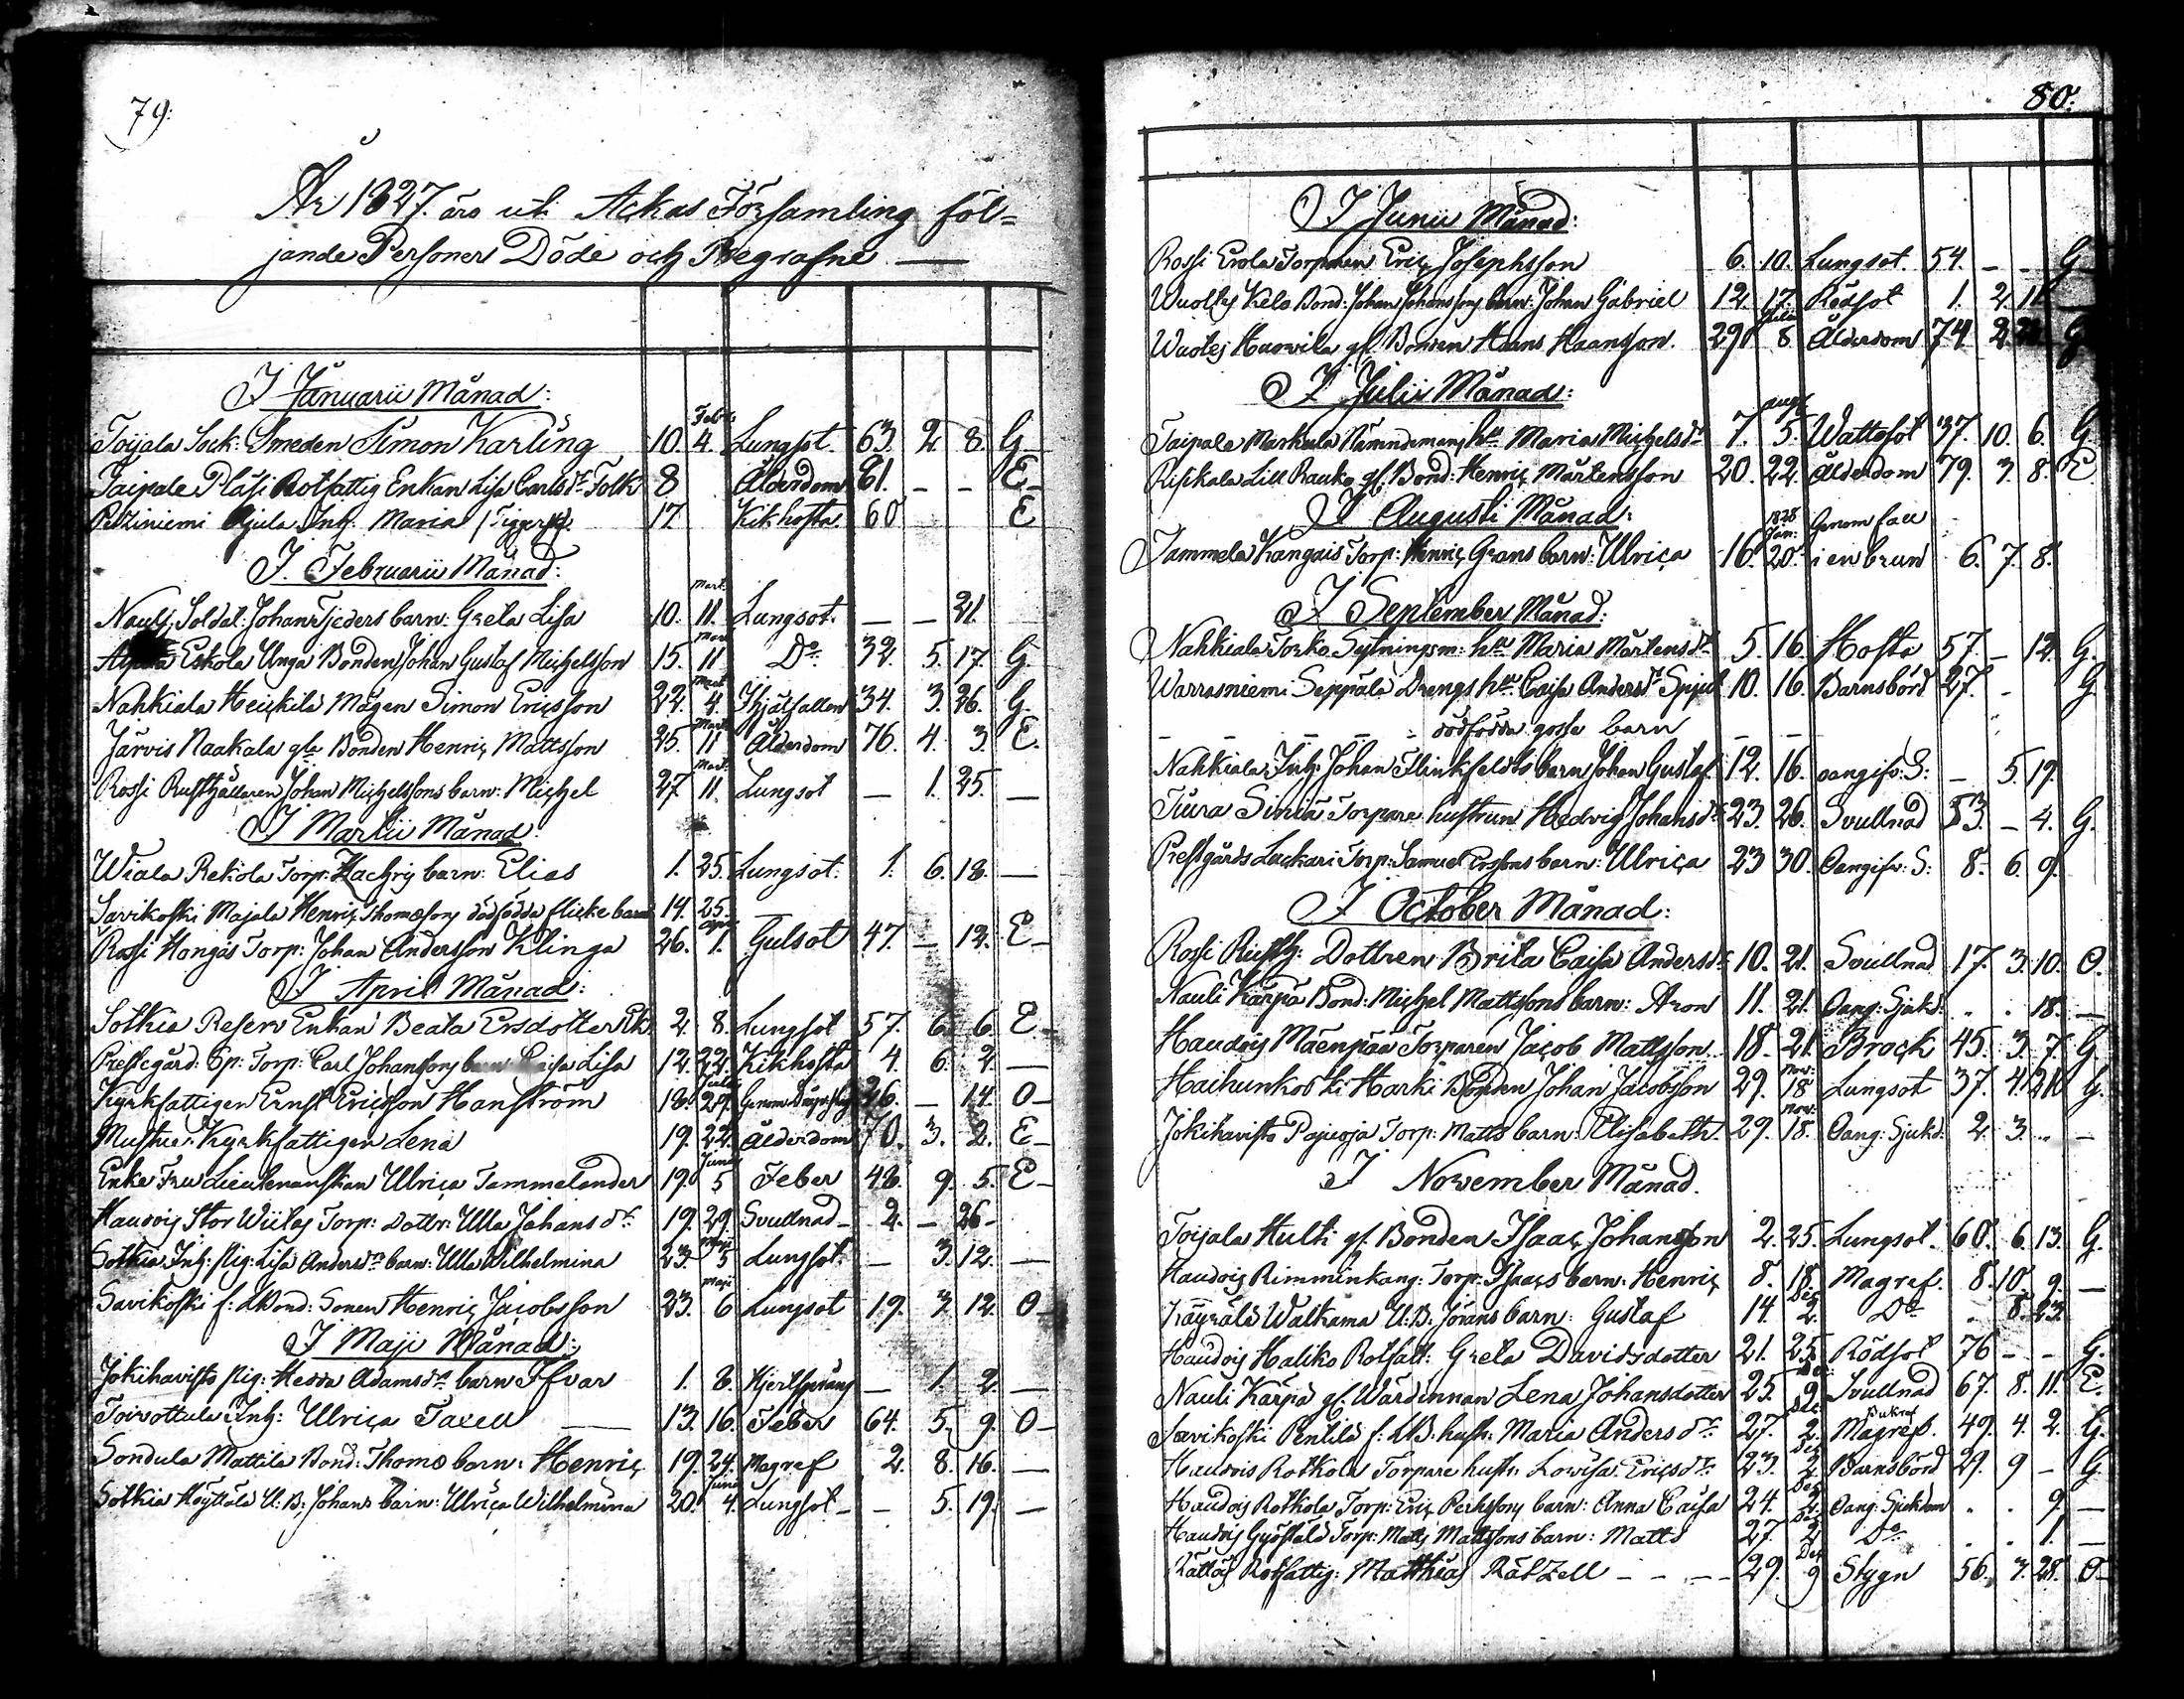 79.
År 1827. äro uti Ackas Församling föl=
jande Personer Döde och Begrafne —
I Januarii Månad:
Febr:
Toijala Sock: Smeden Simon Karling 10. 4. Lungsot. 63. 2. 8. G
Taipale Pläsi Rotfattig Enkan Lisa Carlsdr Folk 8 Ålderdom 81. - - E
Petziniemi Ajula Inh: Maria 17 Kikhosta 60 E
I Februarii Månad:
Mart.
Nauli, Soldat: Johan Tjeders barn: Greta Lisa 10. 11. Lungsot. — — 21
Mart
Eskola Unga Bonden Johan Gustaf Michelsson 15. 11 Do 32. 5. 17. G
Mart
Nahkiala Heickilä Mågen Simon Ericsson 22. 4. Ihjälfallen 34. 3. 26. G.
Mart
Järvis Naakala gle Bonden Henric Mattsson 25. 11 Ålderdom 76. 4. 3. E.
Mart.
Rossi Rusthållaren Johan Michelssons barn: Michel 27 11. Lungsot — 1. 25. —
I Martii Månad:
Wiala Rekola Torp: Zachris barn: Elias 1. 25. Lungsot: 1. 6. 18. —
Savikoski Majala Henric Thomæsons dödfödda flicke barn 14. 25. —
Apr
Rossi Hongas Torp: Johan Andersson Klinga 26. 1. Gulsot 47. — 12. E
I April Månad:
Sotkia Reserv Enkan Beata Ersdotter 2. 8. Lungsot 57. 6. 6. E
Prestegård. Sp: Torp: Carl Johanssons barn Caisa Lisa 12. 22. Kikhosta 4. 6. 2. —
Julii
Kyrkfattigen Ernst Ericsson Hanström 18. 29. Genom 26. — 14. O
Kyrkfattigen Lena 19. 22. Ålderdom 70. 3. 2. E
Junii
Enke Fru Lieutenantskan Ulrica Tammelander 19. 5 Feber 48. 9. 5. E
Haudois Stor Wiilas Torp: Dottr: Ulla Johansdr 19. 29. Svullnad 2. — 26
Maji
Sotkia Inh: pig: Lisa Andersdrs barn: Ulla Wilhelmina 23. 5 Lungsot. — 3. 12. —
Maji
Savikoski f: d Bond: Sonen Henric Jacobsson 23. 6 Lungsot 19. 3. 12. O
I Maji Månad:
Jokihavisto pig: Hedda Adamsdrs barn Ifvar 1. 8. Hjertsprång — 1. 2. —
Toivottula Inh: Ulrica Taxell 13. 16. Feber 64. 5. 9. O
Sondula Mattila Bond: Thomæ barn: Henric 19. 24. Magref 2. 8. 16. —
Junii
Sotkia Höyttälä U:B: Johans barn: Ulrica Wilhelmina 20. 4. Lungsot — 5. 19. —
80.
I Junii Månad:
Rossi Erola Torparen Eric Josephsson 6. 10. Lungsot. 54. - - G
Wuoltis Kelo Bond: Johan Johanssons barn: Johan Gabriel 12. 17. Rödsot 1. 2. 11. —
Julii
Wuoles Huovila gl. Bonden Hans Haansson. 29. 8 Ålderdom 74. 2. G
I Julii Månad:
Aug
Taipale Markula Nämndemans hu Maria Michelsdr 7. 5. Wattesot 37. 10. 6. G.
Risikala Lill Rauko gl. Bond: Henric Mårtensson 20. 22. Ålderdom 79. 3. 8. E
I Augusti Månad:
1828 Jan: Genom fall
Tammela Kangais Torp: Henric Grans barn: Ulrica 16. 20. i en brun 6. 7. 8.
I September Månad:
Nahkiala Torko Sytningsm: hu Maria Mårtensdr 5. 16. Hosta 57. — 12. G.
Warrasniemi Seppälä Drengs hu Caisa Andersdr 10. 16. Barnsbörd 27. - G
- - - - - dödfödda gosse barn - -
Nahkiala Inh: Johan Flinkfeldts barn Johan Gustaf 12. 16. oangifv: S: — 5. 19.
Tiura Torpare hustrun Hedvig Johansdr 23. 26. Svullnad 53. — 4. G.
Prestgårds Lackari Torp: Samuel barn: Ulrica 23 30. Oangifv: S: 8. 6. 9.
I October Månad:
Rossi Rusth: Dottren Brita Caisa Andersdr 10. 21. Svullnad 17. 3. 10. O.
Nauli Kärpä Bond: Michel Mattssons barn: Aron 11. 21. Oang: Sjukd: . . 18. —
Haudois Mäenpää Torparen Jacob Mattsson 18. 21. Bråck 45. 3. 7. G
Nov:
Haihunkoski Harki Bonden Johan Jacobsson 29. 18 Lungsot 37. 4. 21. G.
Nov:
Jokihavisto Pajuoja Torp: Matts barn: Elisabeth. 29. 18. Oang: Sjukd: 2. 3. .. —
I November Månad.
Toijala Hulti gl. Bonden Isaac Johansson 2. 25. Lungsot. 60. 6. 13. G.
Haudois Rimminkang: Torp: Isaacs barn: Henric 8. 18. Magref. 8. 10. 9. —
Dec
Käyrälä Walkama U:B. Jörans barn: Gustaf 14. 2. Do . 8. 23.
Haudois Haliko Rotfatt: Greta Davidsdotter 21. 25. Rödsot 76 — — G.
Dec
Nauli Kärpä gl. Wärdinnan Lena Johansdotter 25. 9 Svullnad 67. 8. 11. E.
Dec
Savikoski Pentilä f: d B. hustr: Maria Andersdr 27. 2. Magref. 49. 4. 2. G.
Dec
Haudois Rotkola Torpare hustr: Lovisa Ericsdr 23. 2. Barnsbörd 29. 9 — G
Dec
Haudois Rotkola Torp: Eric Perssons barn: Anna Caisa 24. 2. Oang: Sjukdom . . 9. —
Dec
Haudois Torp: Matts Mattssons barn: Matts 27. 2 Do . . 1. —
Dec
Rättäs Rotfattig: Matthias Rätzell - - - - 29. 9 Stygn 56. 7. 28. O